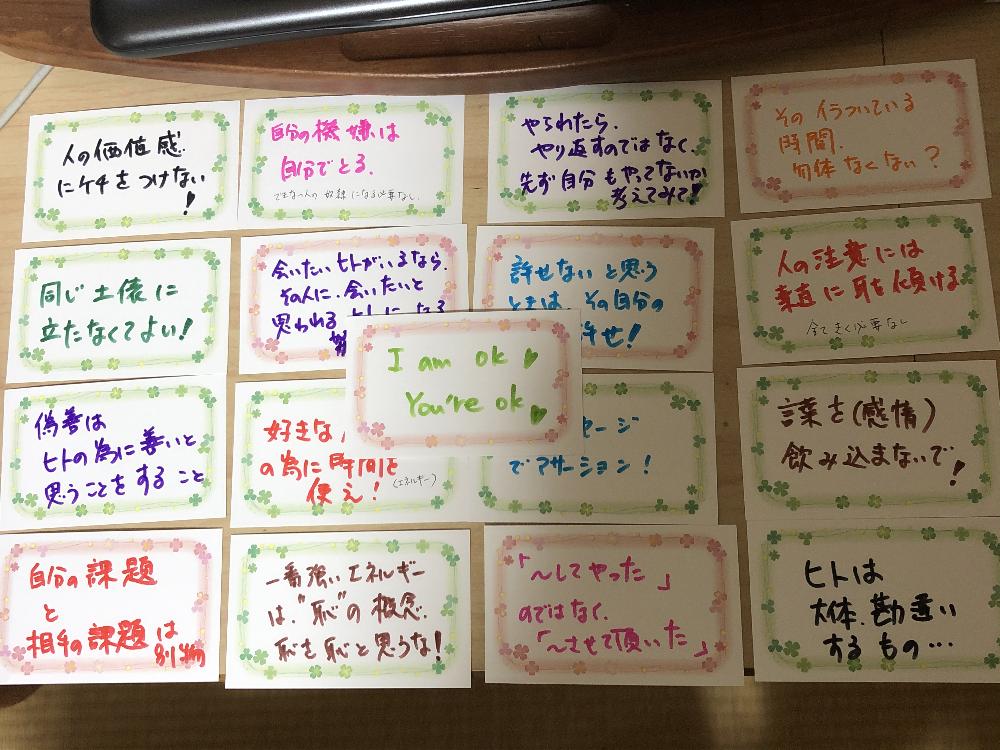 人の価値感
にケチをつけない
!
自分の機嫌は
自分でとる。
できない人の奴隷になる必要なし。
やられたら、
やり返すのではなく、
先ず自分もやってないか
考えてみて!
そのイラついている
時間、
勿体なくない?
同じ土俵に
立たなくてよい!
会いたいヒトがいるなら、
その人に、会いたいと
思われるヒトになる
許せないと思う
ときは、その自分の
許せ!
人の注意には
素直に耳を傾ける
全てきく必要なし
I am ok
You're ok
偽善は
ヒトの為に善いと
思うことをすること
好きな
の為に時間を
使え!
(エネルギー)
セージ
でアサーション!
言葉を(感情)
飲み込まないで!
自分の課題
と
相手の課題は
別物
一番強いエネルギー
は、"恥"の概念、
恥を恥と思うな!
「〜してやった」
のではなく、
「〜させて頂いた」
ヒトは
大体、勘違い
するもの…